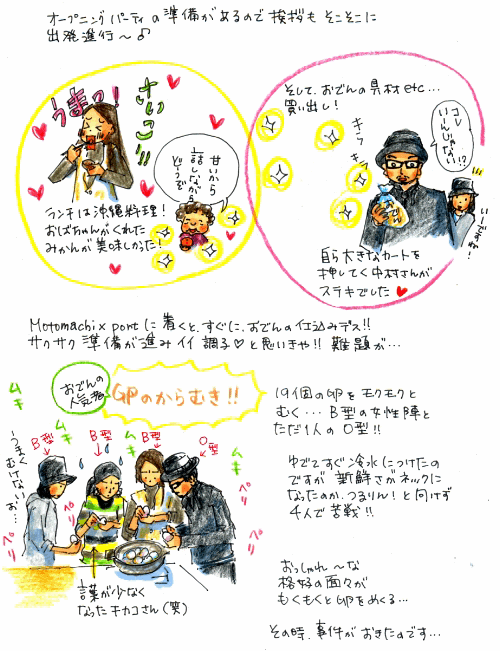 オープニングパーティの準備があるので挨拶もそこそこに
出発進行〜♪
うまっ!
さいこー!!
甘いから
話しながら
どうぞ
ランチは沖縄料理!
おばちゃんがくれた
みかんが美味しかった!
そして、おでんの具材etc...
買い出し!
キラ
キラ
コレ
いいんじゃない!?
いーですね!
自ら大きなカートを
押してく中村さんが
ステキでした
Motomachi x portに着くと、すぐに、おでんの仕込みデス!!
サクサク準備が進みイイ調子♡と思いきや!! 難題が...
おでんの
人気者
卵のからむき!!
ムキ
ムキ
ムキ
ムキ
B型
B型
B型
O型
うまくむけないお...
ペリ
ペリ
ペリ
ペリ
言葉が少なく
なったチカコさん(笑)
19個の卵をモクモクと
むく...B型の女性陣と
ただ1人のO型!!
ゆでてすぐ冷水につけたの
ですが 新鮮さがネックに
なったのか、つるりん!と向けず
4人で苦戦!!
おっしゃれ〜な
格好の面々が
もくもくと卵をめくる...
その時、事件がおきたのです...